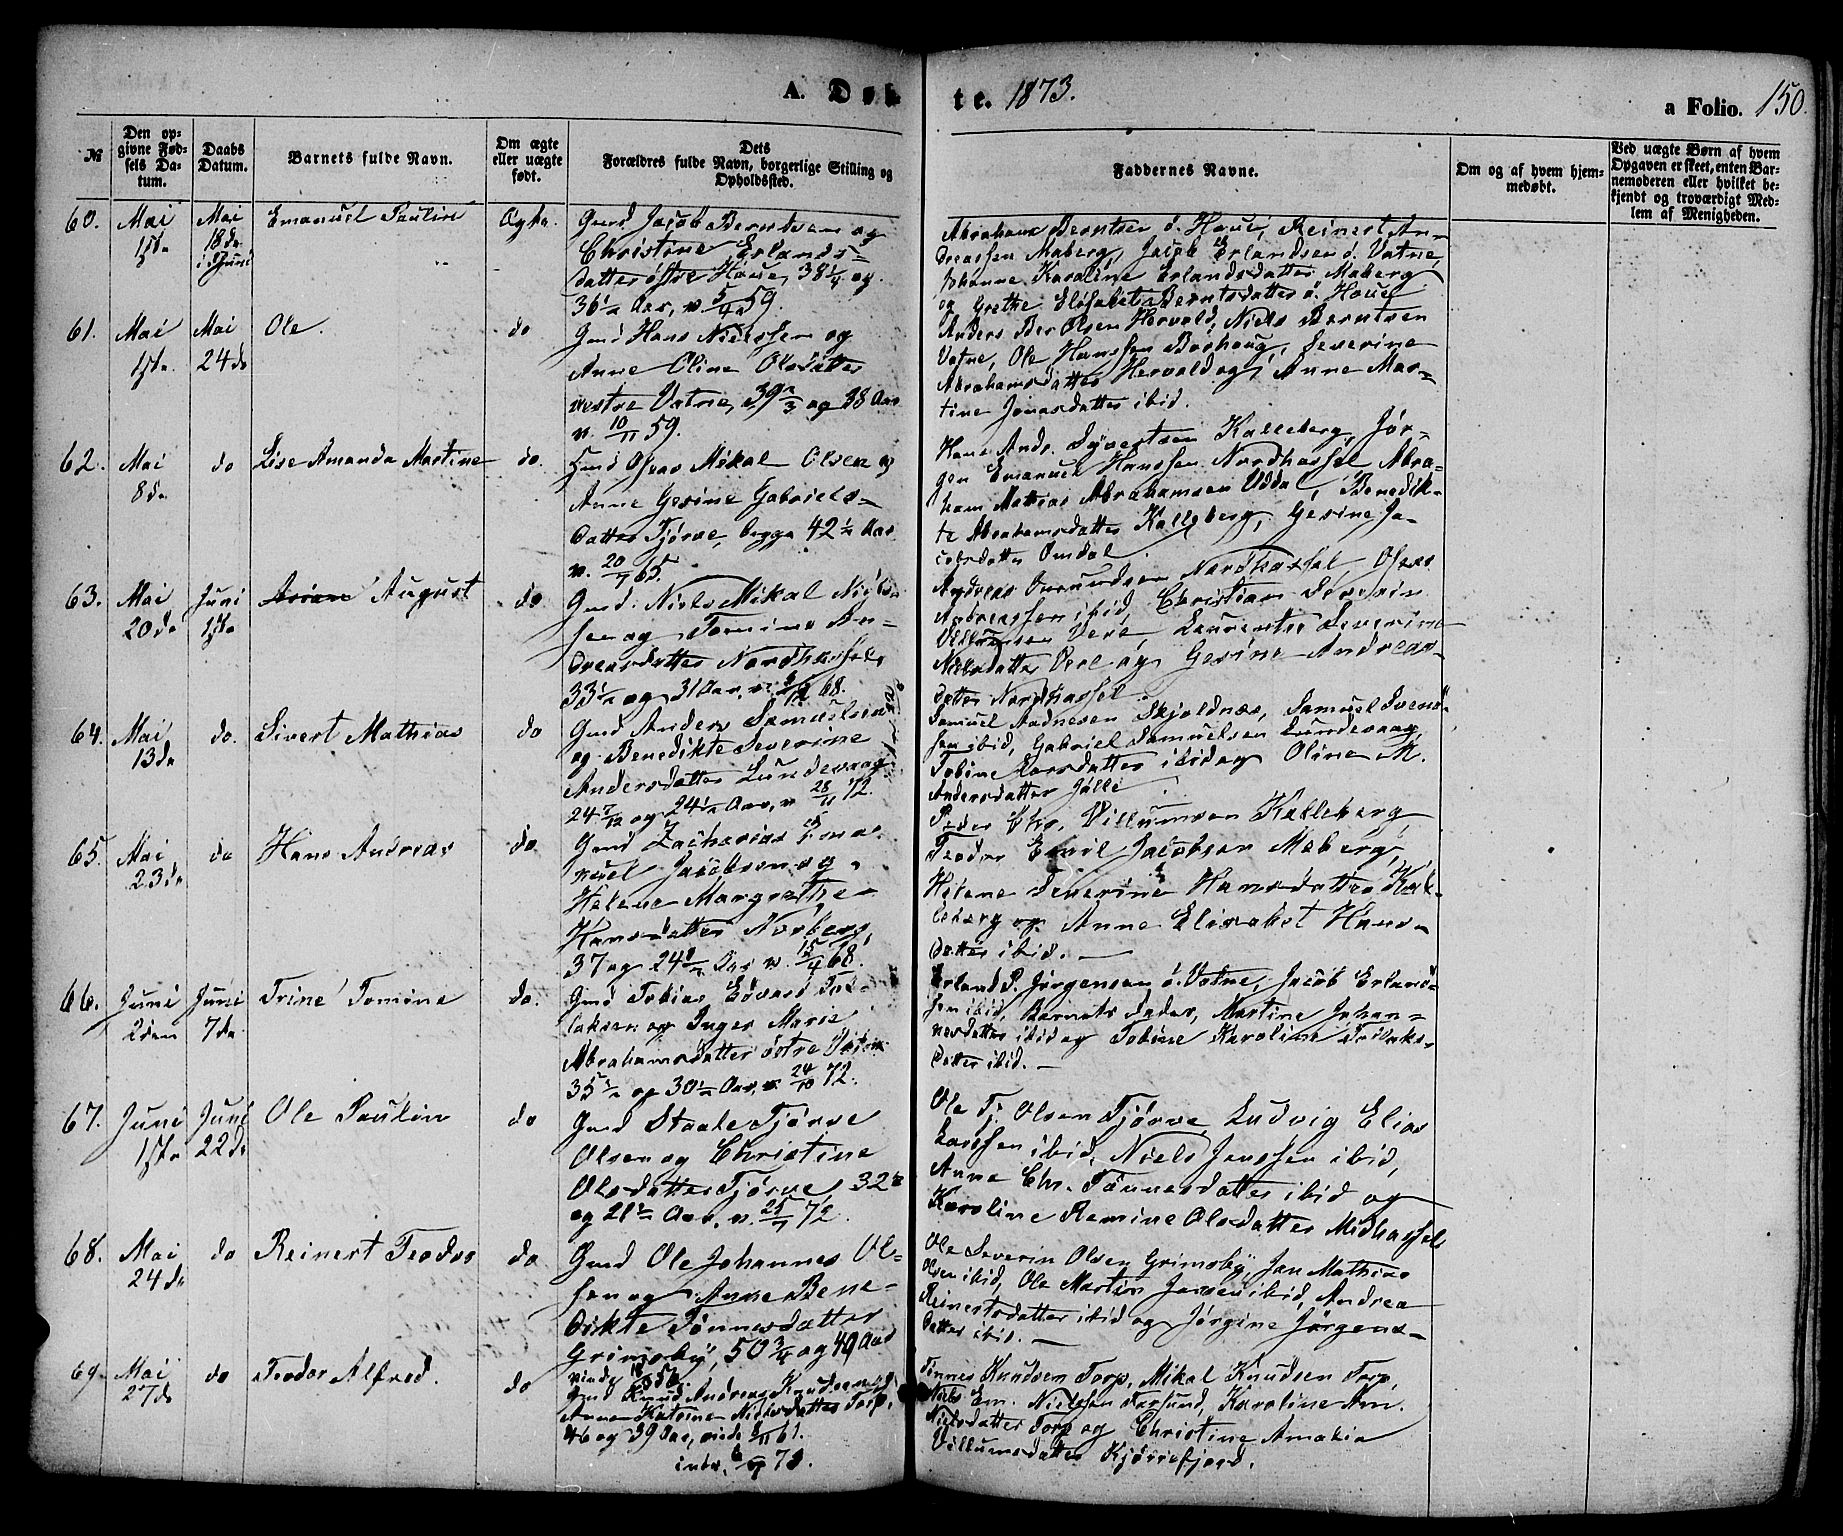 A. Døb
te. 1873.
a Folio. 150.
№
Den op-
givne Fød-
sels Da-
tum.
Daabs
Datum.
Barnets fulde Navn.
Om ægte
eller uægte
født.
Dets
Forældres fulde Navn, borgerlige Stilling og
Opholdssted.
Faddernes Navne.
Om og af hvem hjem-
medøbt.
Ved uægte Børn af hvem
Opgaven er skeet, enten Bar-
nemoderen eller hvilket be-
kjendt og troværdigt Med-
lem af Menigheden.
60. Mai 1ste
Mai 18de
Emanuel Paulin
Ægte.
Gmd Jacob Berntsen og
Christine Erlands-
datter østre Haue, 38 1/4 og
36 1/2 Aar, v. 5/4 59.
Abraham Berntsen ø. Haue, Reinert An-
dreassen Maberg, Jacob Erlandsen ø. Vatne,
Johanne Karoline Erlandsdatter Maberg
og Grethe Elisabet Berntsdatter ø. Haue
61. Mai 1ste
Mai 24de
Ole.
do
Gmd Hans Nielssen og
Anne Oline Olsdatter
vestre Vatne, 39 og 38 Aar
v. 10/11 59.
Anders Ber Olsen Hervold, Niels Berntsen
Vatne, Ole Hanssen Borhaug, Severine
Abrahamsdatter Hervold og Anne Mar-
tine Jonasdatter ibid.
62. Mai 8de
do
Lise Amanda Martine
do.
Gmd Osvas Mikal Olsen og
Anne Gesine Gabriels-
datter Tjørve, begge 42 1/2 Aar
v. 20/7 65.
Hans Andr. Syvertsen Kalleberg, Jør-
gen Emanuel Hanssen Nordhassel, Abra-
ham Mathias Abrahamsen Uddal, Benedik-
te Abrahamsdatter Kalleberg, Gesine Ja-
cobsdatter Omdal.
63. Mai 20de
Juni 1ste
August
do
Gmd. Niels Mikal
sen og Tomine An-
dreasdatter Nordhassel,
33 1/2 og 31 Aar, v. 68.
Andreas Nordhassel, Osvas
Andreassen ibid, Christian Severin
Villumsen Vere, Laurentse Severine
Nielsdatter Vere og Gesine Andreas-
datter Nordhassel.
64. Mai 13de
do.
Sivert Mathias
do
Gmd Anders Samuelsen
og Benedikte Severine
Andersdatter Lundevaag
24 7/12 og 24 1/2 Aar, v 28/11 72.
Samuel Aadnesen Skjoldnæs, Samuel Svend-
sen ibid, Gabriel Samuelsen Lundevaag,
Tobine Larsdatter ibid og Oline M.
Andersdatter Jølle.
65. Mai 23de
do
Hans Andreas
do
Gmd Zacharias Ema-
nuel Jacobsen og
Helene Margrethe
Hansdatter Norberg,
37 og 24 Aar v. 15/4 68.
Peder Chr. Villumsen Kalleberg
Teodor Emil Jacobsen Maberg,
Helene Severine Hansdatter Kal-
leberg og Anne Elisabet Hans-
datter ibid.
66. Juni 2den
Juni 7de
Trine Tomine
do.
Gmd Tobias Edvard Tor-
laksen og Inger Marie
Abrahamsdatter østre Vatne
35 og 30 1/2 Aar, v. 24/10 72.
Erland P. Jørgensen ø. Vatne, Jacob Erland-
sen ibid, Barnets Fader, Martine Johan-
nesdatter ibid og Tobine Karoline
datter ibid.
67. Juni 1ste
Juni 22de
Ole Paulin
do
Gmd Staale Tjørve
Olsen og Christine
Olsdatter Tjørve, 32 1/2
og 21 1/2 Aar, v. 72.
Ole Tj. Olsen Tjørve, Ludvig Elias
Larssen ibid, Niels Janssen ibid,
Anne Chr. Tønnesdatter ibid og
Karoline Remine Olsdatter Midhassel
68. Mai 24de
do
Reinert Teodor
do
Gmd Ole Johannes Ol-
sen og Anne Bene-
dikte Tønnesdatter
Grimsby, 50 3/4 og 40 Aar
Ole Severin Olsen Grimsby, Jan Mathias
Olsen ibid, Ole Martin Jansen ibid, Andrea
Reinertsdatter ibid og Jørgine Jørgens-
datter ibid.
69. Mai 27de
do
Teodor Alfred.
do
Gmd Knud Andreas Knudsen og
Anne Katrine Nielsdatter Torp,
46 og 39 Aar, viede 61.
Tønnes Knudsen Torp, Mikal Knudsen Torp,
Niels Em. Nielssen Farsund, Karoline Am.
Nielsdatter Torp og Christine Amalia
Villumsdatter Kjørrefjord.